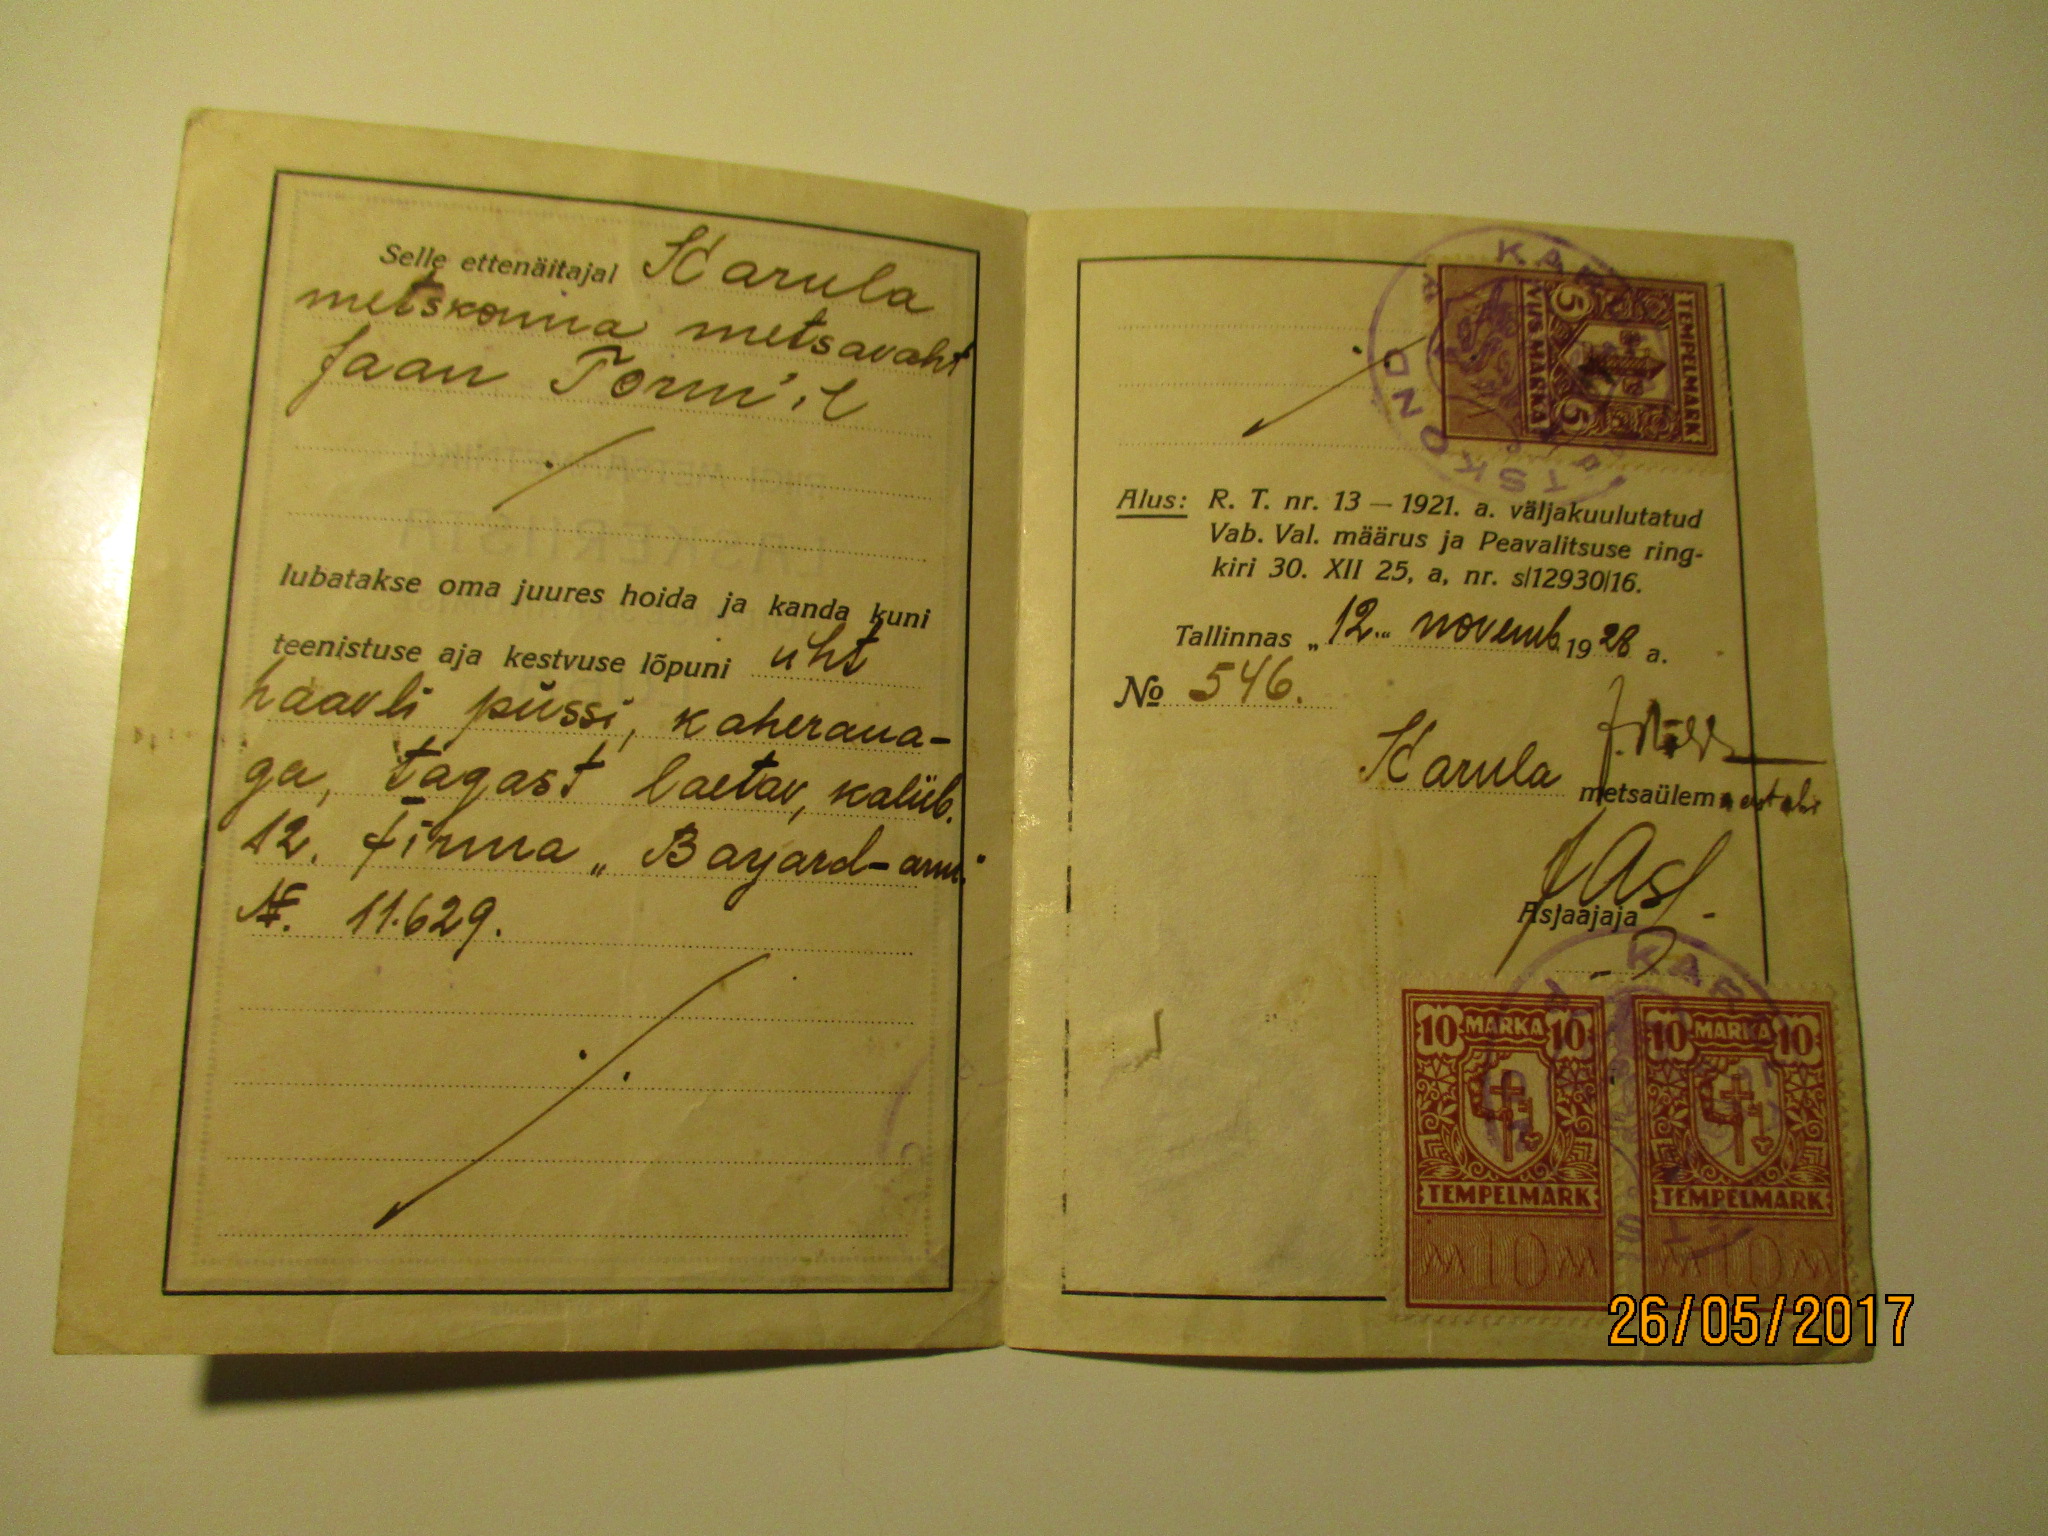 Selle ettenäitajal Karula
metskonna metsavaht
Jaan Torm'il
lubatakse oma juures hoida ja kanda kuni
teenistuse aja kestvuse lõpuni üht
haavli püssi, kaheraua-
ga, tagast laetav, kaliib.
12. firma „Bayard-arm."
N. 11.629.
KAR
TSKOND
TEMPELMARK
5 5
VIIS MARKA
Alus: R. T. nr. 13 — 1921. a. väljakuulutatud
Vab. Val. määrus ja Peavalitsuse ring-
kiri 30. XII 25, a, nr. s/12930/16.
Tallinnas „12." novemb. 1928 a.
No 546.
Karula metsaülem
Asjaajaja
KAR
10 MARKA 10
TEMPELMARK
M 10 M
10 MARKA 10
TEMPELMARK
M 10 M
26/05/2017